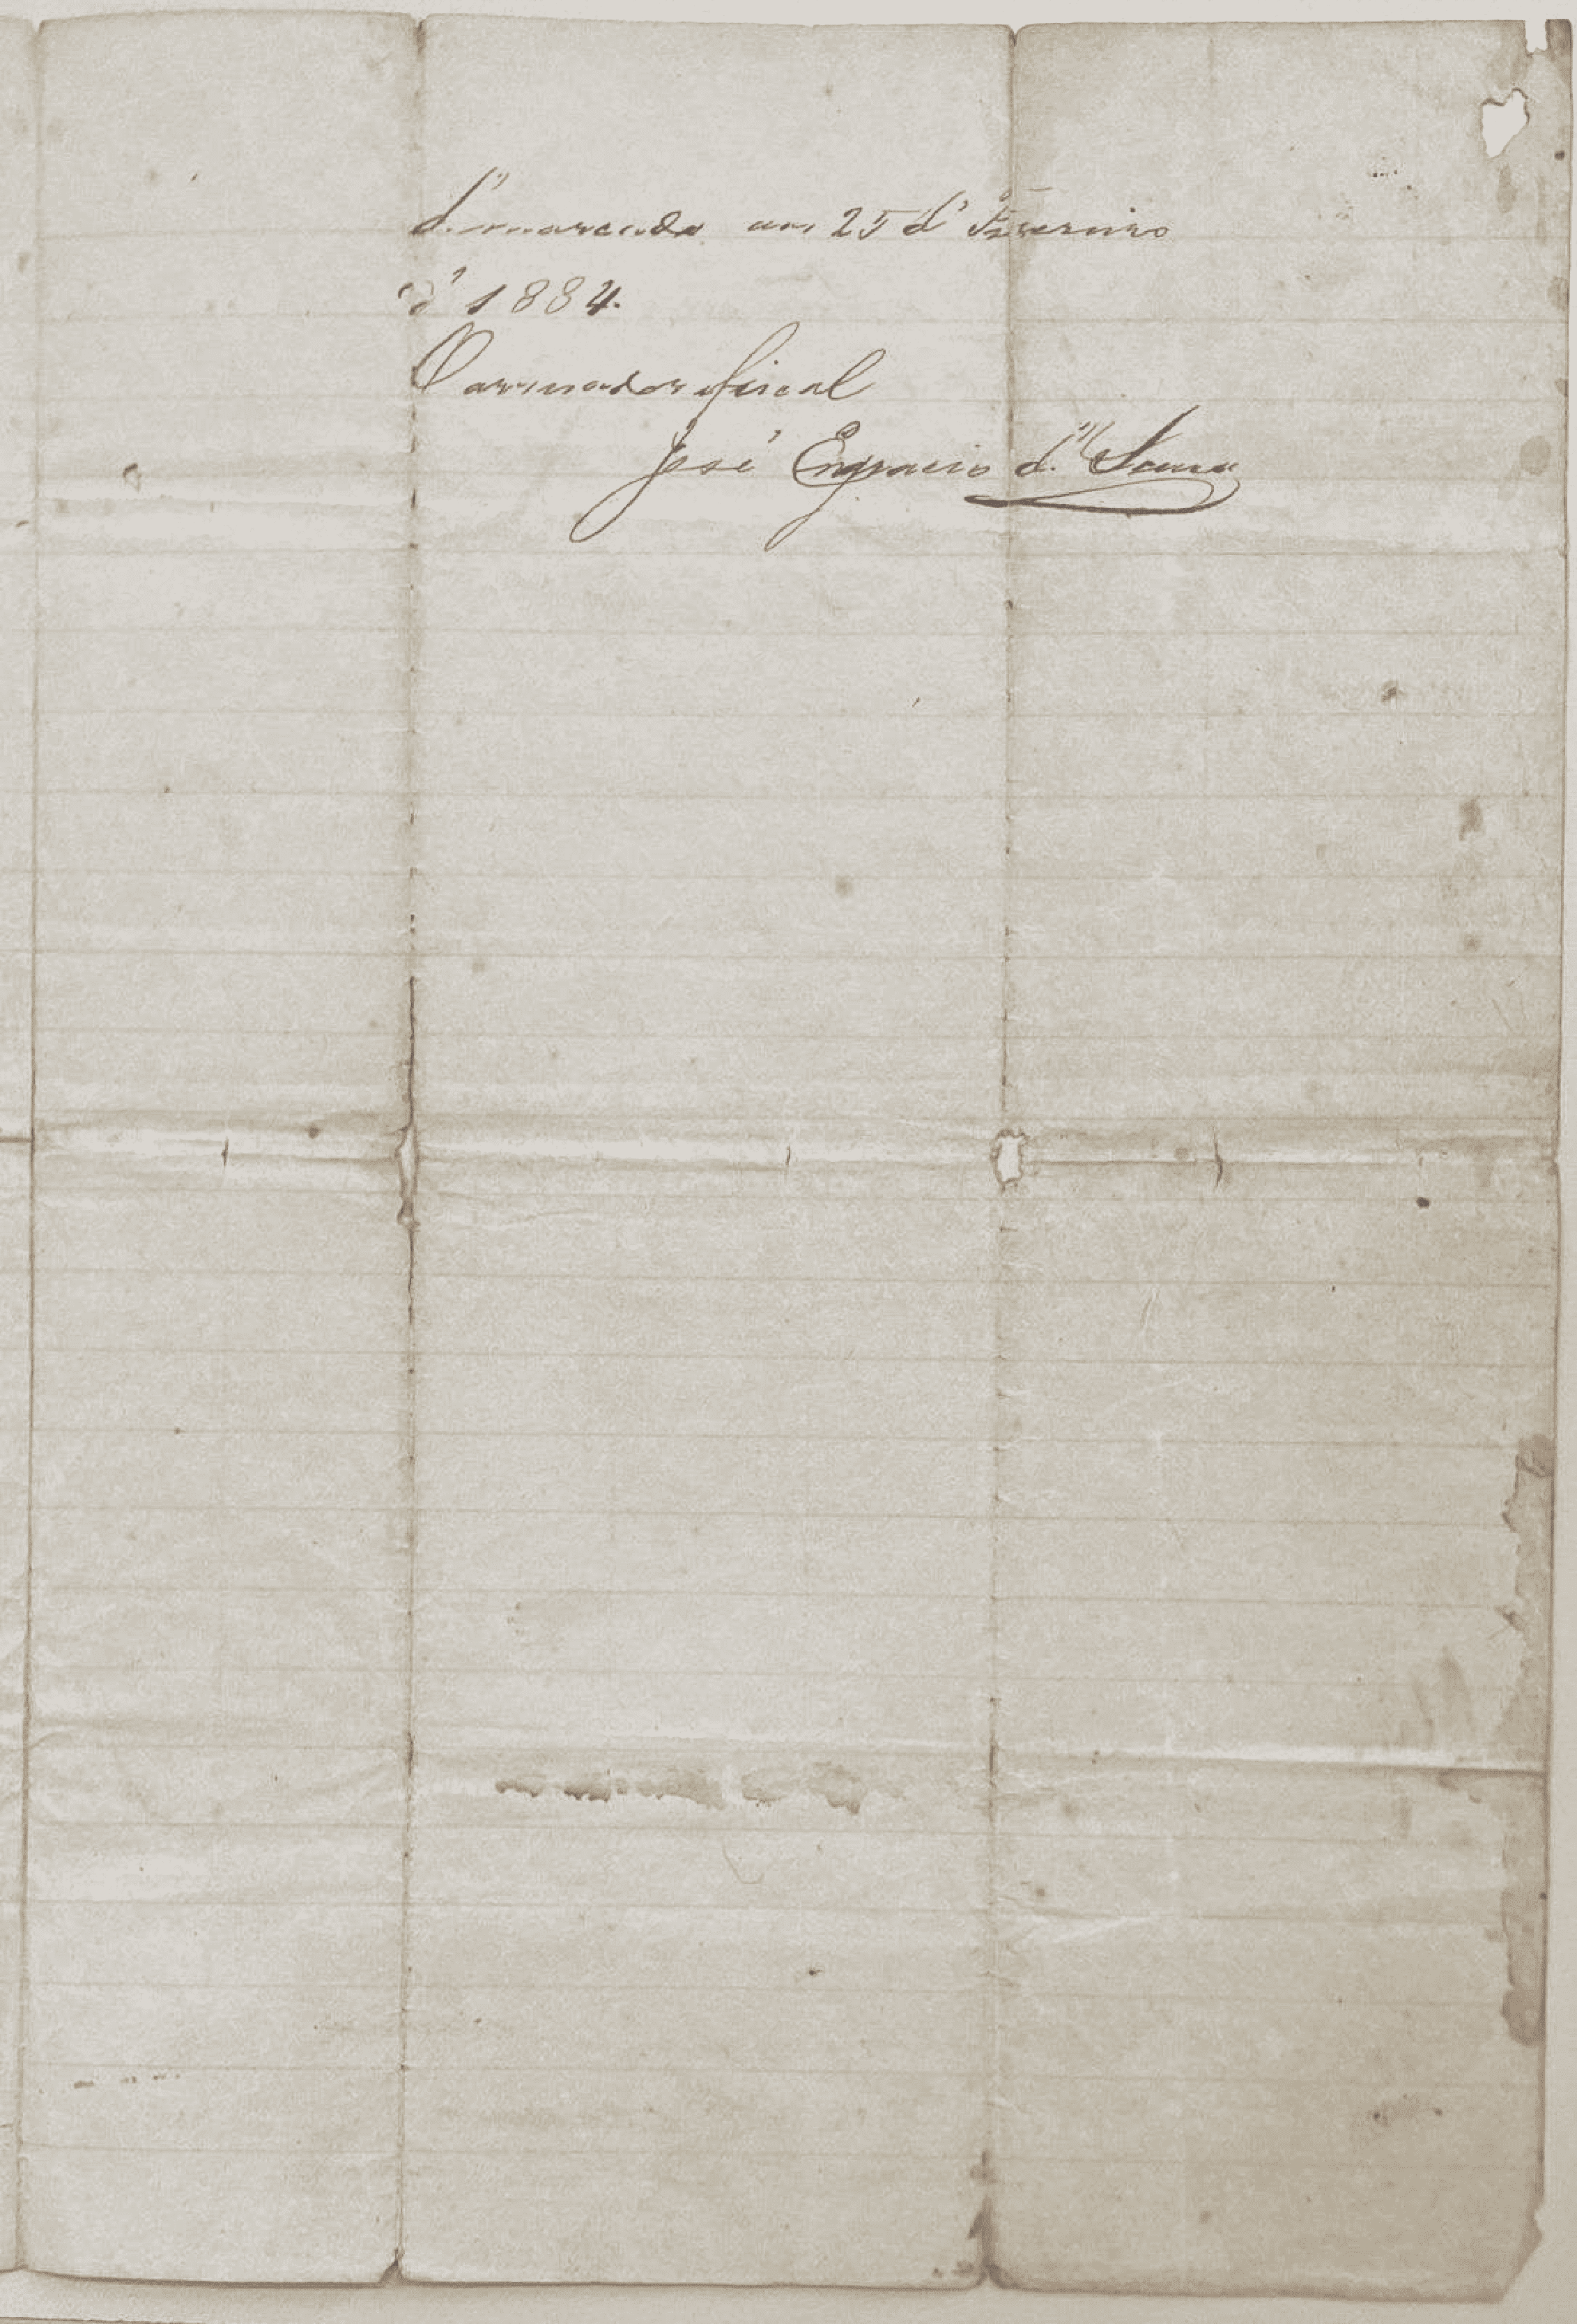 demarcada em 25 de Fevereiro
de 1884.
O arruador fiscal
José Engracio de Souza